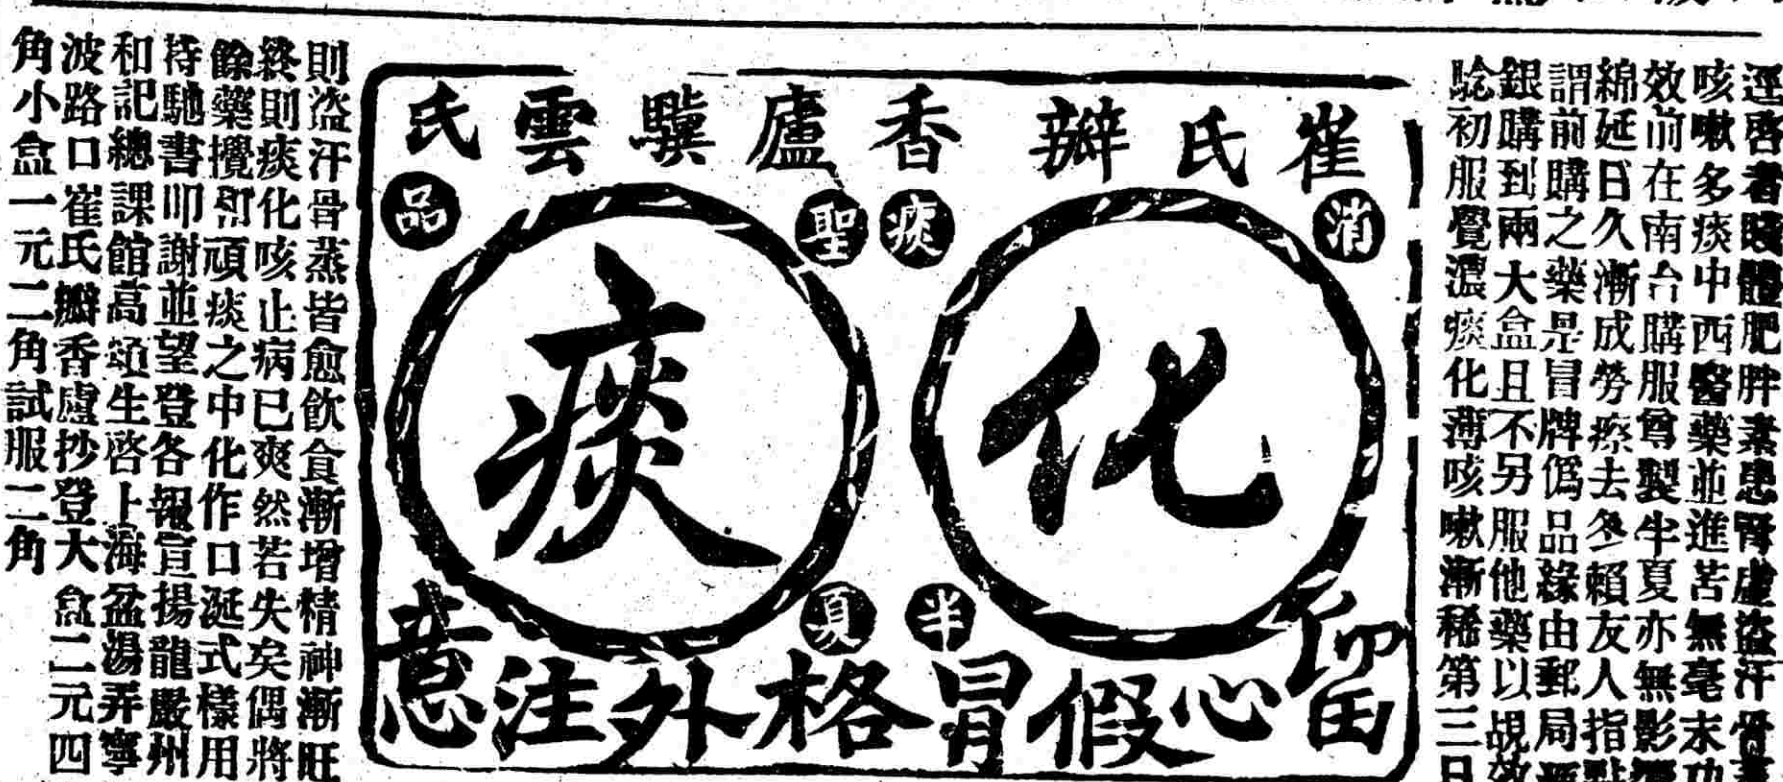 逕啓者
體肥胖素患腎虛盜汗骨
咳嗽多痰中西醫藥並進苦無毫末功
效前在南台購服尊製半夏亦無影
綿延日久漸成勞瘵去冬賴友人指
謂前購之藥是冒牌偽品緣由郵局
銀購到兩大盒且不另服他藥以覘效
騐初服覺濃痰化薄咳嗽漸稀第三日
崔氏瓣香廬驥雲氏
消痰聖品
化痰
半夏
留心假冒格外注意
則盜汗骨蒸皆愈飲食漸增精神漸旺
終則痰化咳止病已爽然若失矣偶將
餘藥攪和頑痰之中化作口涎式樣用
特馳書叩謝並望登各報宣揚龍嚴州
和記總課館高頌生啓上海盆湯弄寧
波路口崔氏瓣香廬抄登大盒二元四
角小盒一元二角試服二角